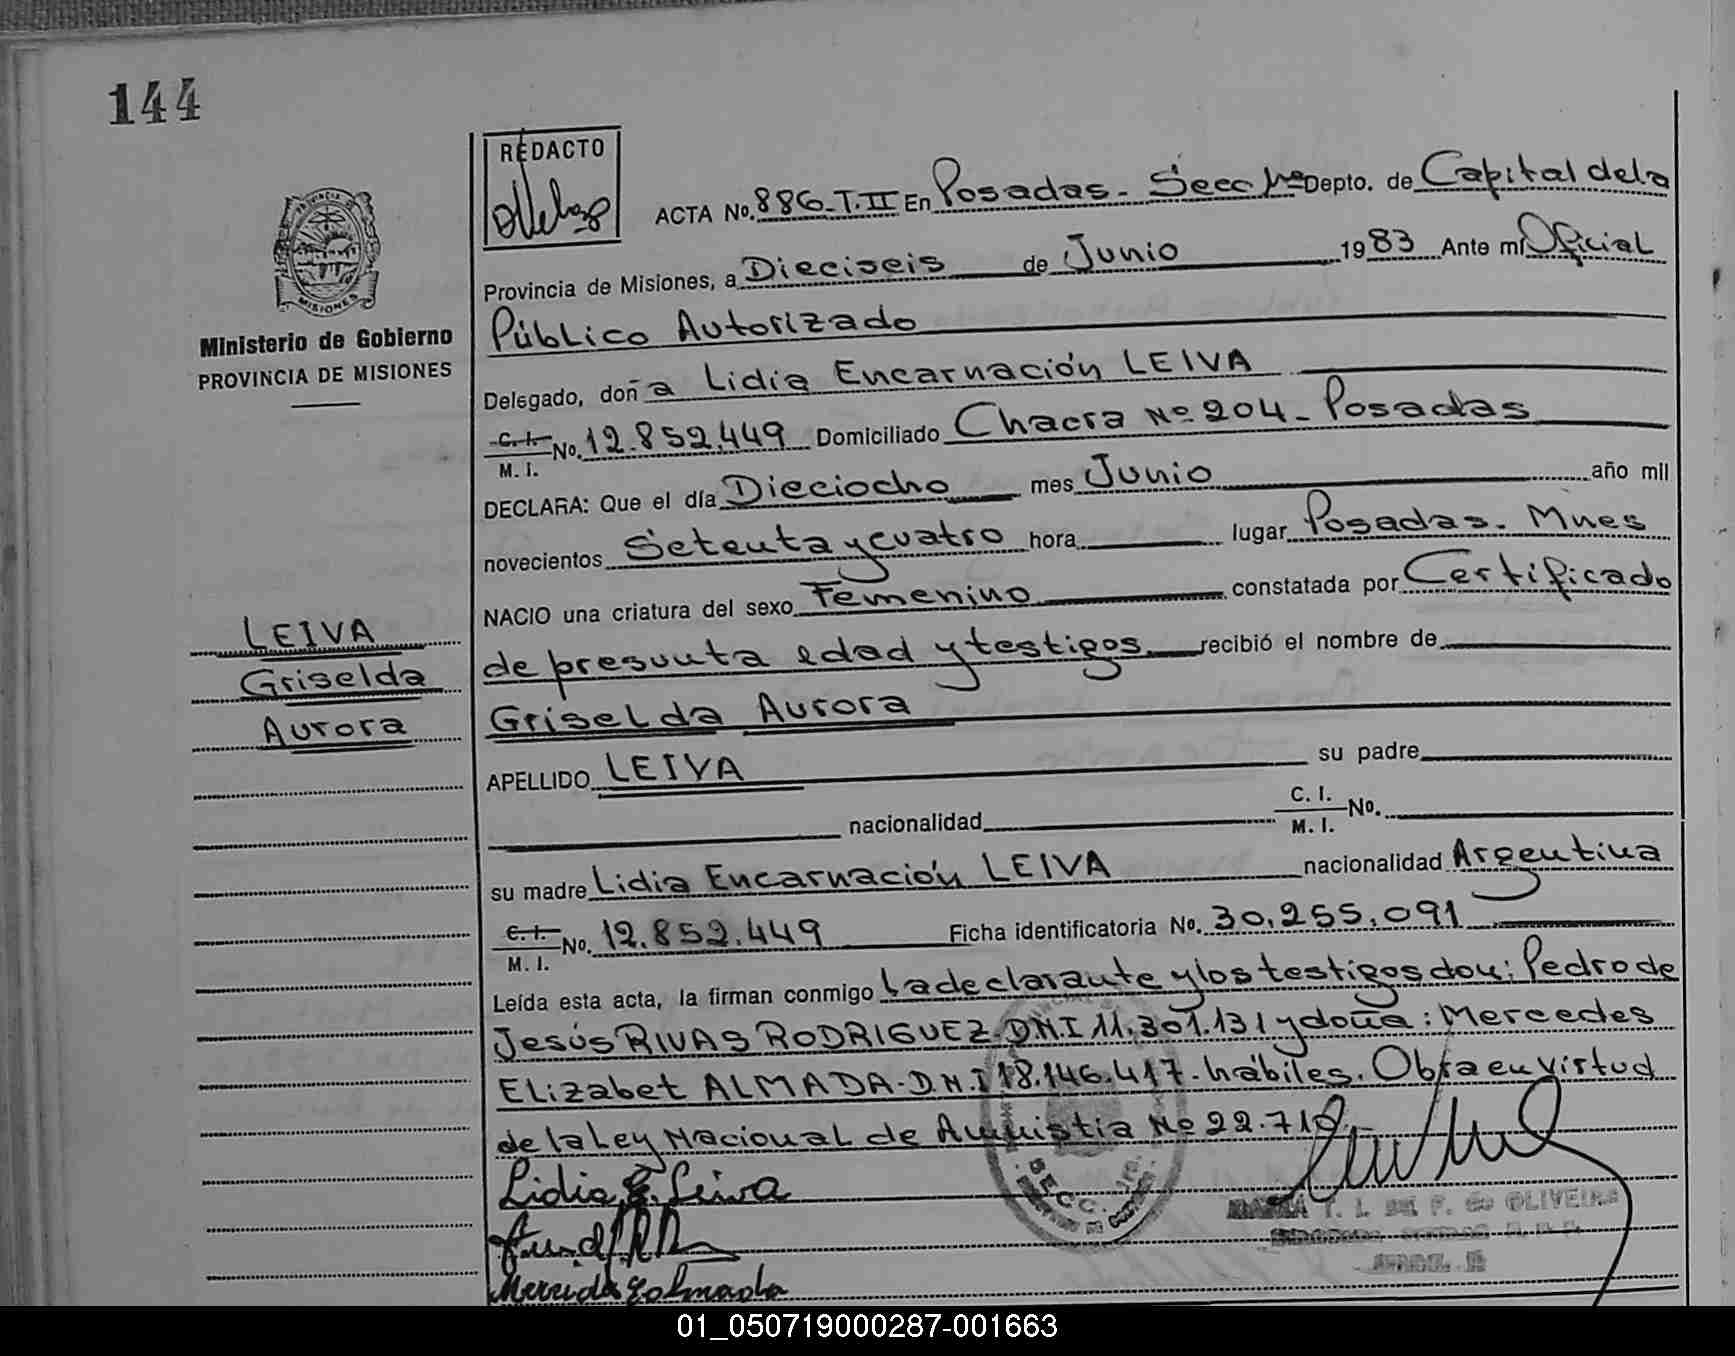 144
REDACTO
ACTA No. 886-T.II En Posadas - Secc 1ra Depto. de Capital de la
Provincia de Misiones, a Dieciseis de Junio 1983 Ante mí Oficial
Público Autorizado
MISIONES
Ministerio de Gobierno
PROVINCIA DE MISIONES
Delegado, doña Lidia Encarnación LEIVA
C. I.
M. I. No. 12.852.449 Domiciliado Chacra Nº 204 - Posadas
DECLARA: Que el día Dieciocho mes Junio año mil
novecientos Setenta y cuatro hora lugar Posadas. Mnes
NACIO una criatura del sexo Femenino constatada por Certificado
de presunta edad y testigos. recibió el nombre de
Griselda Aurora
LEIVA
Griselda
Aurora
APELLIDO LEIVA su padre
nacionalidad C. I.
M. I. No.
su madre Lidia Encarnación LEIVA nacionalidad Argentina
C. I.
M. I. No. 12.852.449 Ficha identificatoria No. 30.255.091
Leída esta acta, la firman conmigo La declarante y los testigos don: Pedro de
Jesús RIVAS RODRIGUEZ. D.N.I 11.301.131 y doña: Mercedes
Elizabet ALMADA - D.N.I 18.146.417 - hábiles. Obra en virtud
de la Ley Nacional de Amnistia Nº 22.710
Lidia E. Leiva
SECC. 1ra.
DE OLIVEIRA
01_050719000287-001663